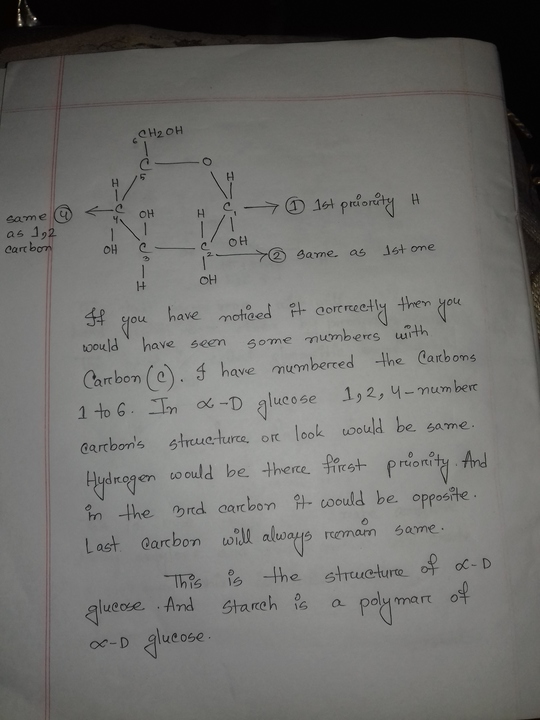 6 CH2OH
C O
5
H H
same 4 C C1 → 1 1st priority H
as 1,2 4 OH H
carbon OH C C2 OH → 2 same as 1st one
3
H OH
If you have noticed it correctly then you
would have seen some numbers with
Carbon (C). I have numbered the Carbons
1 to 6. In α-D glucose 1,2,4-number
carbon's structure or look would be same.
Hydrogen would be there first priority. And
in the 3rd carbon it would be opposite.
Last carbon will always remain same.
This is the structure of α-D
glucose. And starch is a polymar of
α-D glucose.